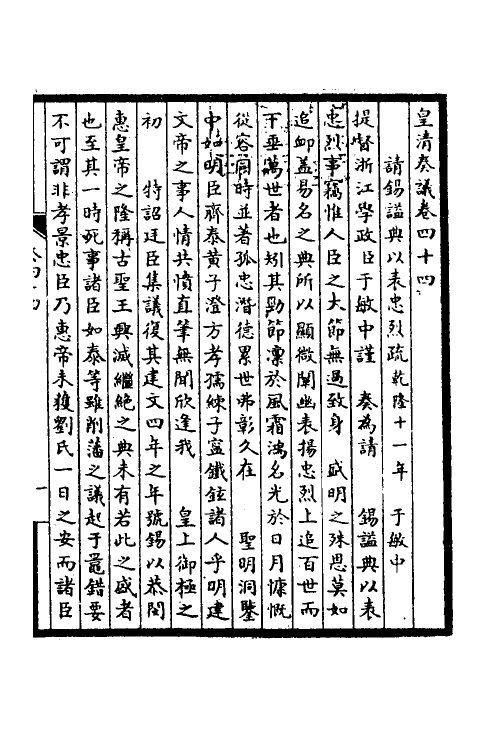 皇清奏議卷四十四
請錫諡典以表忠烈疏 乾隆十一年 于敏中
提督浙江學政臣于敏中謹 奏為請 錫諡典以表
忠烈事竊惟人臣之大節無過致身 盛明之殊恩莫如
追卹蓋易名之典所以顯微闡幽表揚忠烈上追百世而
下垂萬世者也矧其勁節凛於風霜濁名光於日月慷慨
從容同時並著孤忠潛德累世弗彰久在 聖明洞鑒
中如明臣齊泰黃子澄方孝孺練子寗鐵鉉諸人乎明建
文帝之事人情共憤直筆無聞欣逢我 皇上御極之
初 特詔廷臣集議復其建文四年之年號錫以恭閔
惠皇帝之隆稱古聖王興滅繼絕之典未有若此之盛者
也至其一時死事諸臣如泰等雖削藩之議起于鼂錯要
不可謂非孝景忠臣乃惠帝未獲劉氏一日之安而諸臣